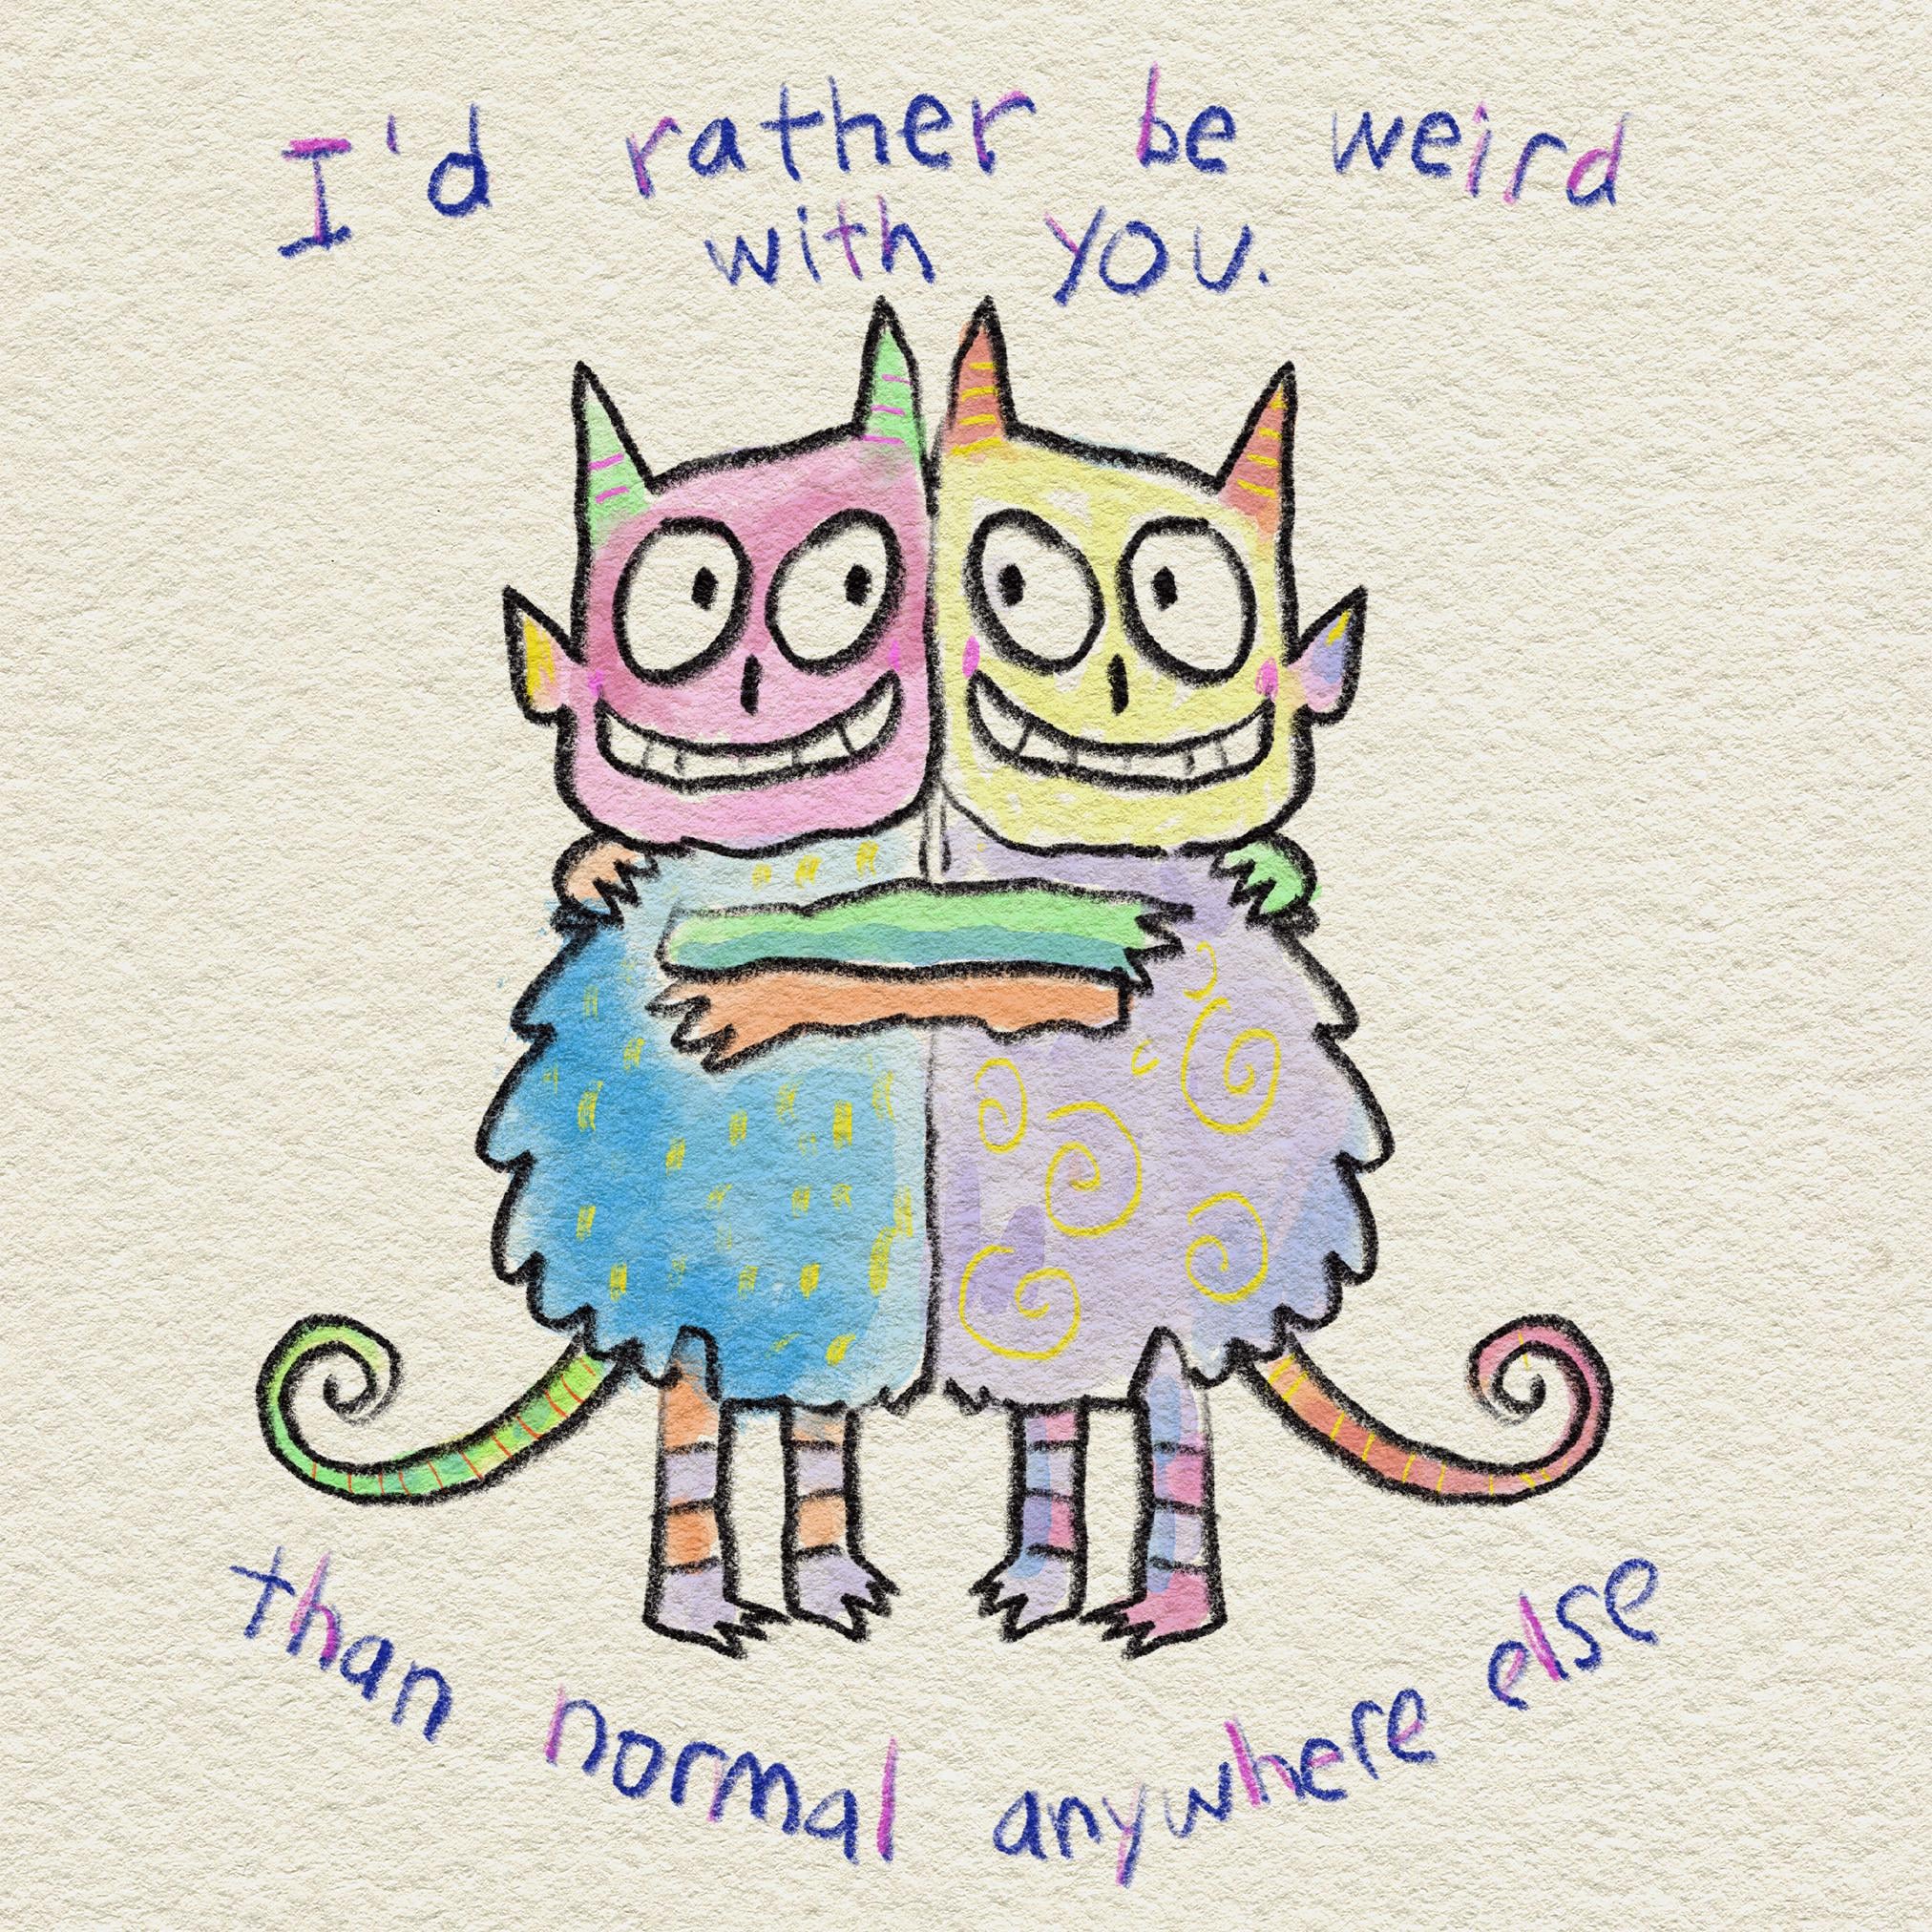 I'd rather be weird
with you.
than normal anywhere else